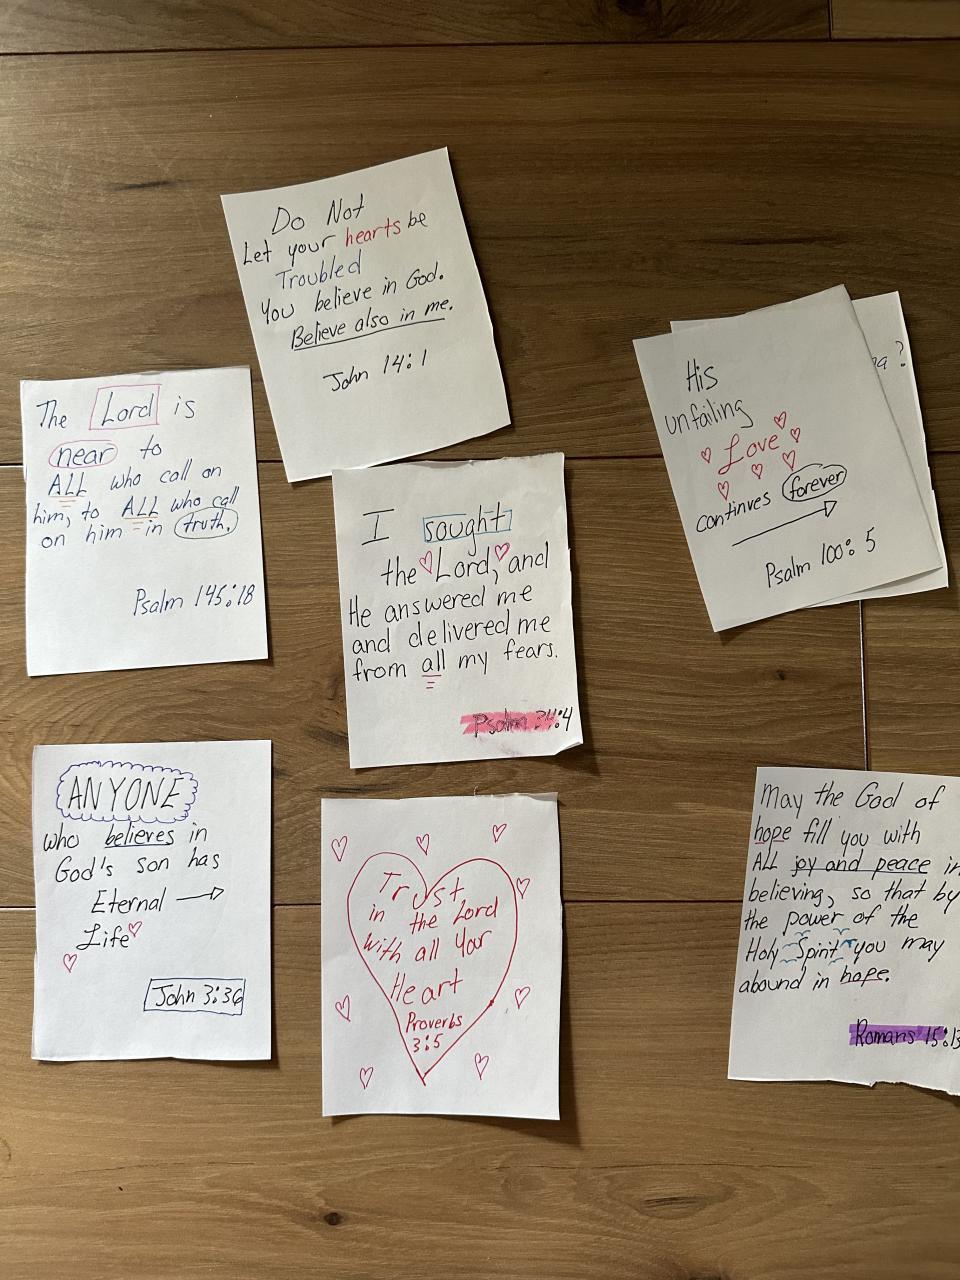 Do Not
Let your hearts be
Troubled
You believe in God.
Believe also in me.
John 14:1
The Lord is
near to
ALL who call on
him, to ALL who call
on him in truth.
Psalm 145:18
I sought
the Lord, and
He answered me
and delivered me
from all my fears.
Psalm 34:4
His
unfailing
Love
continues forever
Psalm 100:5
ANYONE
who believes in
God's son has
Eternal
Life
John 3:36
Trust
in the Lord
with all your
Heart
Proverbs
3:5
May the God of
hope fill you with
ALL joy and peace in
believing, so that by
the power of the
Holy Spirit you may
abound in hope.
Romans 15:13